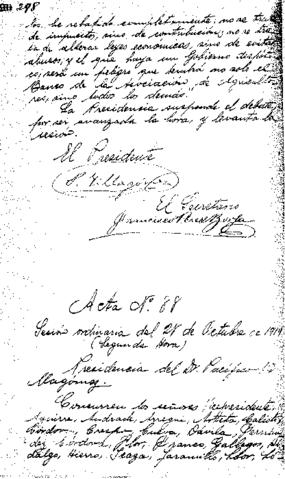 298
los he rebatido completamente: no se trata
de impuestos, sino de contribuciones; no se tra-
ta de alterar leyes económicas, sino de evitar
abusos, y el que haya un Gobierno despóti-
co, será un peligro que tendrá no solo el
Banco de la Asociación de Agriculto-
res, sino todos los demás".
La Presidencia suspende el debate,
por ser avanzada la hora, y levanta la
sesión.
El Presidente
El Secretario
Francisco
Acta Nº. 88
Sesión ordinaria del 28 de Octubre de 1919
(Segunda Hora)
Presidencia del Dr. Pacífico
Villagómez.
Concurren los señores Vicepresidente,
Aguirre, Andrade, Arregui, Arteta, Calisto,
Córdova, Crespo, Cueva, Dávila, Fernán-
dez Córdova, Flor, Franco, Gallegos, Hi-
dalgo, Hierro, Icaza, Jaramillo,